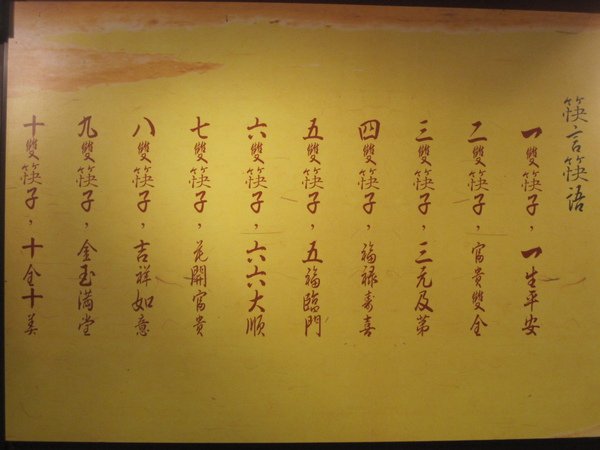 筷言筷語
一雙筷子，一生平安
二雙筷子，富貴雙全
三雙筷子，三元及第
四雙筷子，福祿壽喜
五雙筷子，五福臨門
六雙筷子，六六大順
七雙筷子，花開富貴
八雙筷子，吉祥如意
九雙筷子，金玉滿堂
十雙筷子，十全十美